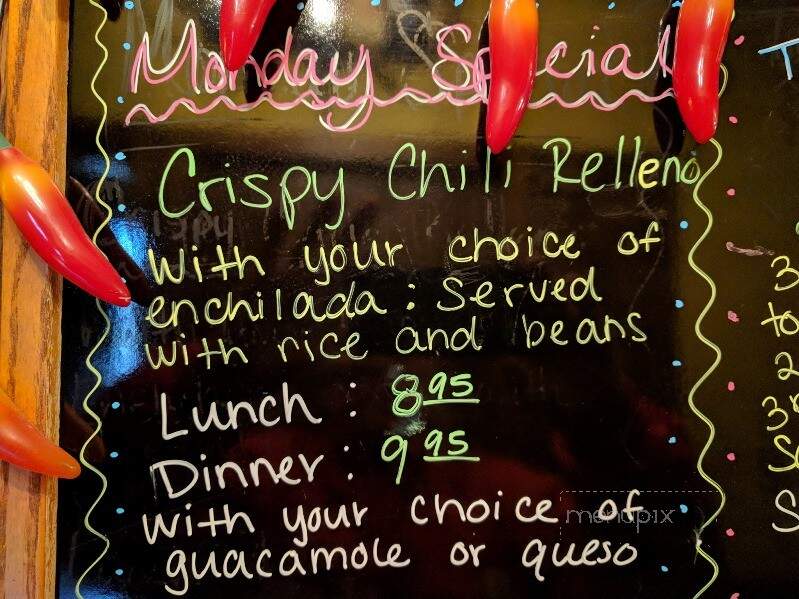 Monday Special
Crispy Chili Relleno
With your choice of
enchilada : Served
with rice and beans
Lunch : 8 95
Dinner : 9 95
with your choice of
guacamole or queso
menupix
T
3
to
2
3
S
S